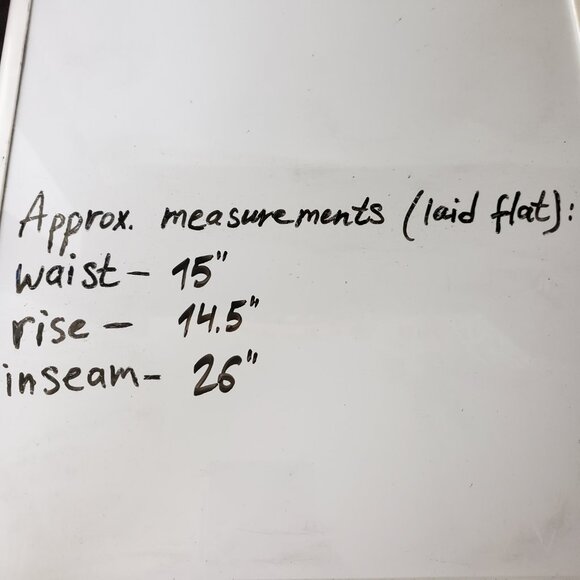 Approx. measurements (laid flat):
waist- 15"
rise - 14.5"
inseam- 26"